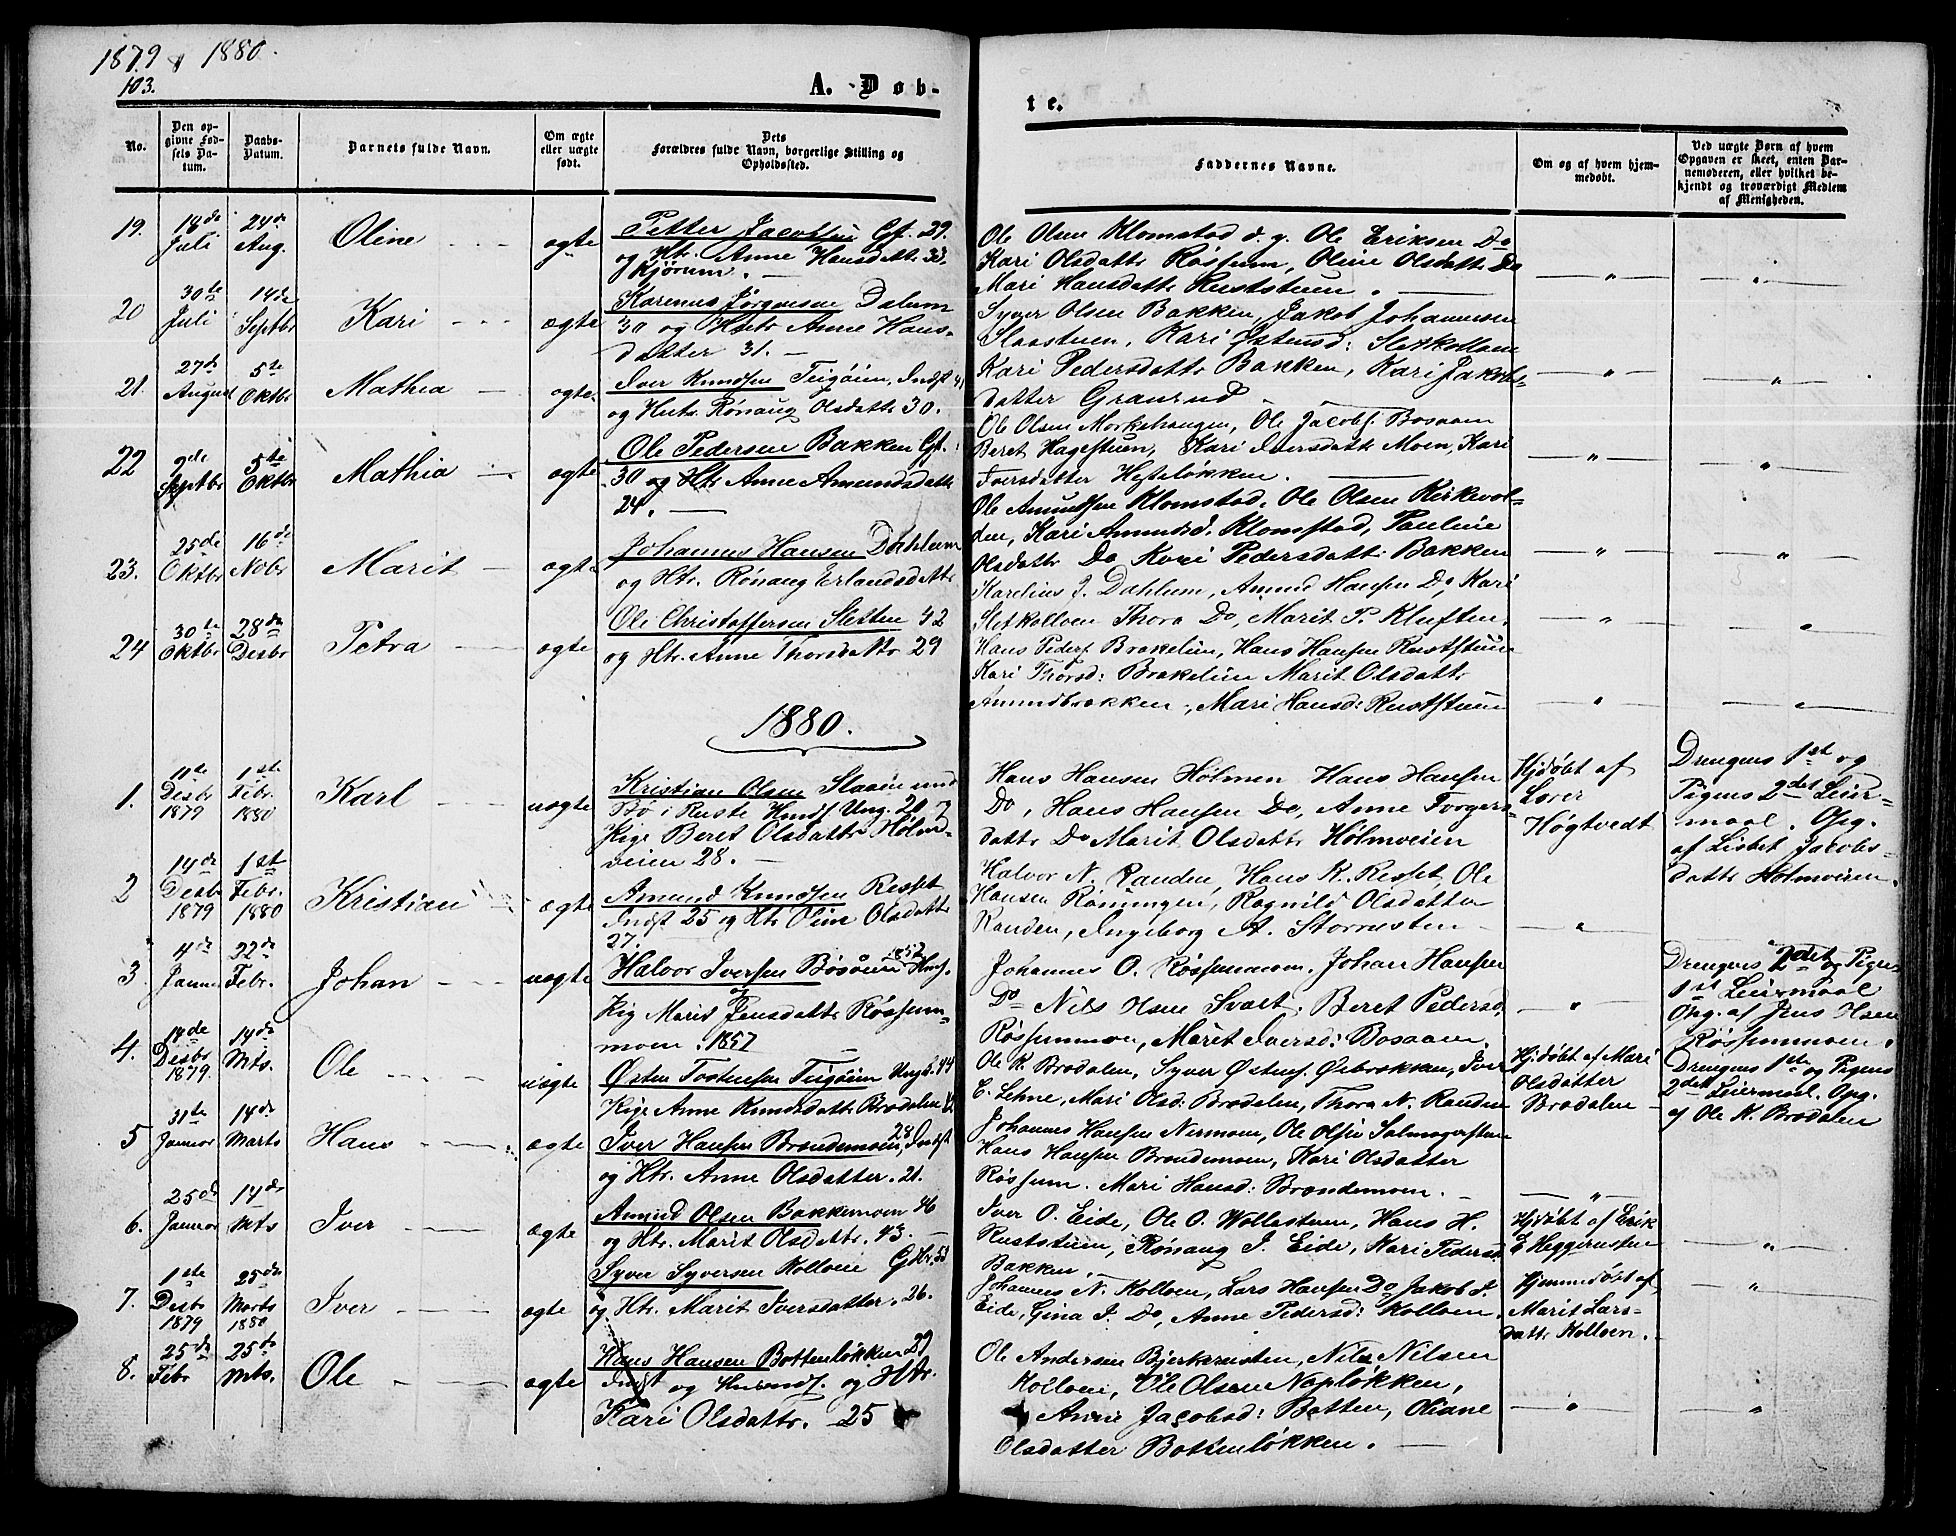 1879 & 1880.
103.
A. Døb-
te.
No.
Den op-
givne Fød-
sels Da-
tum.
Daabs-
Datum.
Barnets fulde Navn.
Om ægte
eller uægte
født.
Dets
Forældres fulde Navn, borgerlige Stilling og
Opholdssted.
Faddernes Navne.
Om og af hvem hjem-
medøbt.
Ved uægte Børn af hvem
Opgaven er skeet, enten Bar-
nemoderen, eller hvilket be-
kjendt og troværdigt Medlem
af Menigheden.
19.
18de
Juli
24de
Aug.
Oline
ægte
Petter Jacobsen Gf. 29.
og Htr. Anne Hansdatt. 33.
Kjørum.
Ole Olsen Klomstad d. y. Ole Eriksen Do
Kari Olsdattr Røssum, Oline Olsdattr Do
Mari Hansdattr Ruststuen.
20
30te
Juli
14de
Septbr
Kari
ægte
Karenus Jørgensen Dalum
30 og Hustr Anne Hans-
datter 31.
Syver Olsen Bakken, Jakob Johannesen
Slaastuen, Kari Østensd: Sletkolloen
Kari Pedersdattr Bakken, Kari Jakobs-
datter Gransrud
21.
27de
August
5te
Oktbr
Mathea
ægte
Iver Knudsen Teigøien, Indst 41
og Hustr. Rønaug Olsdattr 30.
Ole Olsen Morkshaugen, Ole Jacobs. Bosaaen
Beret Hagestuen, Kari Iversdattr Moen, Kari
Iversdatter Hesteløkken.
22
2de
Septbr
5te
Oktbr
Mathia
ægte
Ole Pedersen Bakken Gf.
30 og Htr Anne Amundsdattr
24.
Ole Amundsen Klomstad, Ole Olsen Kirkevol-
den, Kari Amundsd. Klomstad, Pauline
Olsdattr Do Kari Pedersdattr Bakken
23.
25de
Oktbr
16de
Nobr
Marit
ægte
Johannes Hansen Dahlum
og Htr. Rønaug Erlandsdattr
Karelius J. Dahlum, Amund Hansen Do, Kari
Sletkolloen Thora Do, Marit P. Kluften.
24
30te
Oktbr
28de
Desbr
Petra
ægte
Ole Christoffersen Sletten 42
og Htr. Anne Thorsdattr 29
Hans Peders. Brakelien, Hans Hansen Ruststuen
Kari Thorsd: Brakelien Marit Olsdattr
Amundbrækken, Mari Hansd: Ruststuen
1880.
1.
11te
Desbr
1879
1ste
Febr.
1880
Karl
uægte
Kristian Olsen Slaaen
Bø i Ruste Ung. 20
Pige Beret Olsdattr Holm-
veien 28.
Hans Hansen Holmen Hans Hansen
Do, Hans Hansen Do, Anne Torger-
dattr Do Marit Olsdattr Holmveien
Hjdøbt af
Lærer
Høgtvedt
Drengens 1st og
Pigens 2det Leier-
maal. Opg.
af Lisbet Jacobs-
dattr Holmveien.
2
14de
Desbr
1879
1st
Febr.
1880
Kristian
ægte
Amund Knudsen Resset
Indst 25 og Htr Oline Olsdattr
27.
Halvor N. Randen, Hans K. Resset, Ole
Hansen Røningen, Ragnild Olsdatter
Randen, Ingeborg A. Storrusten
3
4de
Januar
22de
Febr.
Johan
uægte
Halvor Iversen Bøsaaen 1857
og
Pig Marit Jensdattr Røssum-
moen. 1857
Johannes O. Røssummoen. Johan Hansen
Do Nils Olsen Svart, Beret Pedersd.
Røssummoen, Marit Iversd: Bosaaen.
Drengens 2det og Pigens
1st Leiermaal
Opg. af Jens Olsen
Røssummoen.
4.
14de
Desbr
1879
14de
Mts.
Ole
uægte
Østen Tostensen Teigøien Ungk. 44
Pige Anne Knudsdattr Brødalen
Ole K. Brødalen, Syver Østens. Øibrækken, Iver
E. Lehne, Mari Olsd: Brødalen, Thora N. Randen
Hjdøbt af Mari
Olsdatter
Brødalen
Drengens 1ste og Pigens
2det Leiermaal. Opg.
af Ole K. Brødalen
5
31te
Januar
14de
Marts
Hans
ægte
Iver Hansen Brændemoen 28, Indst
og Htr. Anne Olsdatter. 21.
Johannes Hansen Nermoen, Ole Olsen
Hans Hansen Brændemoen, Kari Olsdatter
Røssum. Mari Hansd: Brændemoen.
6.
25de
Januar
14de
Mts
Iver
ægte
Amund Olsen Bakkemoen 46
og Htr. Marit Olsdattr. 43.
Iver O. Eide, Ole O. Wollestuen, Hans H.
Ruststuen, Rønaug I. Eide, Kari Pedersd
Bakken.
Hjdøbt af Erik
E Heggerusten
7.
1ste
Desbr
1879
25de
Marts
1880
Iver
ægte
Syver Syversen Kolloen Gdbr. 53
og Htr. Marit Iversdatter. 26.
Johannes N. Kolloen, Lars Hansen Do, Jakob I.
Eide, Gina I. Do, Anne Pedersd: Kolloen.
Hjemmedøbt af
Marit Lars-
dattr Kolloen.
8.
25de
Febr
25de
Mts.
Ole
ægte
Hans Hansen Bottenløkken 29,
Indst og Husmd. og Htr.
Kari Olsdattr. 25
Ole Andersen Bjerkerusten, Nils Nilsen
Kolloen, Ole Olsen Napløkken,
Anne Jacobsd: Botten, Oliane
Olsdatter Bottenløkken.